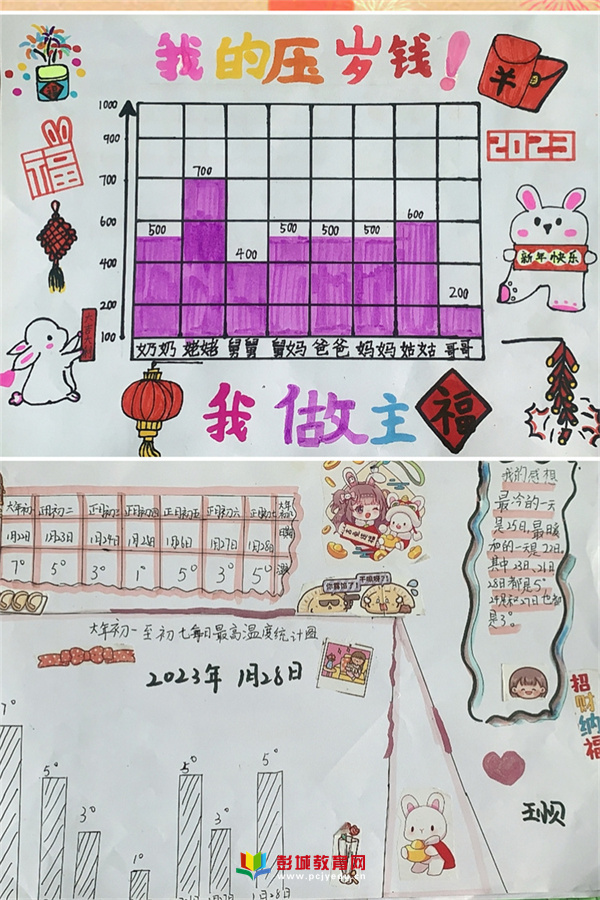 我的压岁钱！
2023
福
新年快乐
1000
900
700
600
400
200
100
500
700
400
500
500
500
600
200
奶奶 姥姥 舅舅 舅妈 爸爸 妈妈 姑姑 哥哥
我做主
福
大年初 正月初二 正月初三 正月初四 正月初五 正月初六 正月初七
1月23日 1月24日 1月27日 1月28日
7° 5° 3° 1° 5° 3° 5°
大年初一至初七每日最高温度统计图
2023年 1月28日
7° 5° 3° 1° 5° 3° 5°
1月28日
我的感想
最冷的一天
是25日,最暖
和的一天是22日,
其中23日、21日
28日都是5°,
24日和27日也都
是3°。
招财纳福
彭城教育网
www.pcjyedu.cn